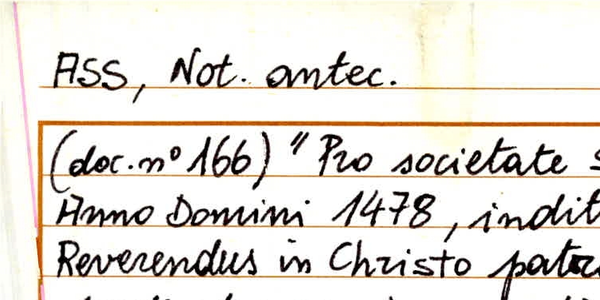 ASS, Not. antec.
(doc. nº 166) "Pro societate
Anno Domini 1478, indit
Reverendus in Christo pat